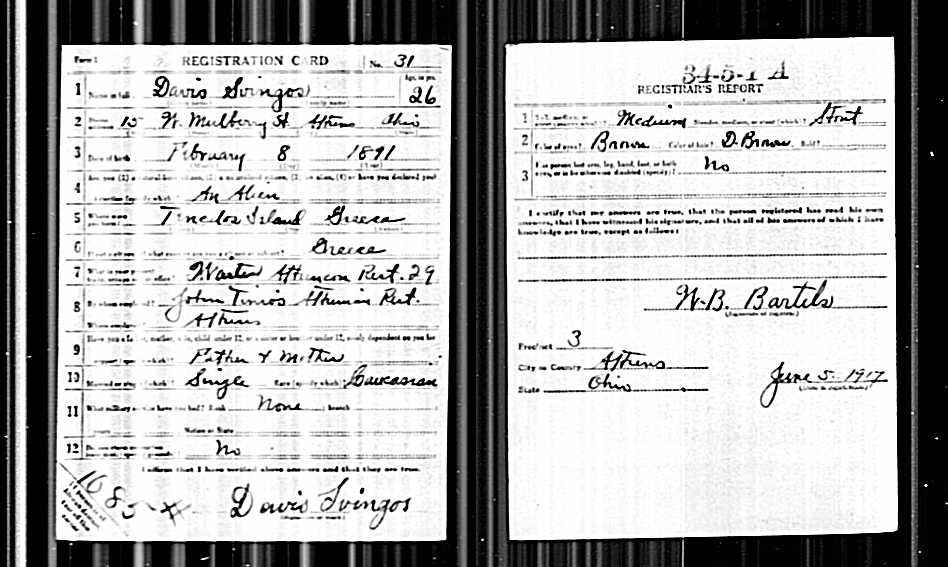 Form 1 REGISTRATION CARD No. 31
1 Name in full Davis Svingos Age, in yrs. 26
2 Home address 15 W. Mulberry St Athens Ohio
3 Date of birth February 8 1891
4 Are you (1) a natural-born citizen, (2) a naturalized citizen, (3) an alien, (4) or have you declared your
intention (specify which)? An Alien
5 Where were you born? Tinelos Island Greece
6 Greece
7 What is your present Waiter Athenian Rest. 29
8 By whom employed? John Tinios Athenian Rest.
Where employed? Athens
9 Have you a father, mother, wife, child under 12, or a sister or brother under 12, solely dependent on you for
support (specify which)? Father & Mother
10 Married or single (which)? Single Race (specify which)? Caucasian
11 What military service have you had? Rank None ; branch
years Nation or State
12 Do you claim exemption No
I affirm that I have verified above answers and that they are true.
1685
Davis Svingos
34-5-1 A
REGISTRAR'S REPORT
1 Tall, medium, or Medium Slender, medium, or stout (which)? Stout
2 Color of eyes? Brown Color of hair? D. Brown Bald?
3 Has person lost arm, leg, hand, foot, or both
eyes, or is he otherwise disabled (specify)? No
I certify that my answers are true, that the person registered has read his own
answers, that I have witnessed his signature, and that all of his answers of which I have
knowledge are true, except as follows:
W. B. Bartels
(Signature of registrar)
Precinct 3
City or County Athens
State Ohio
June 5 1917